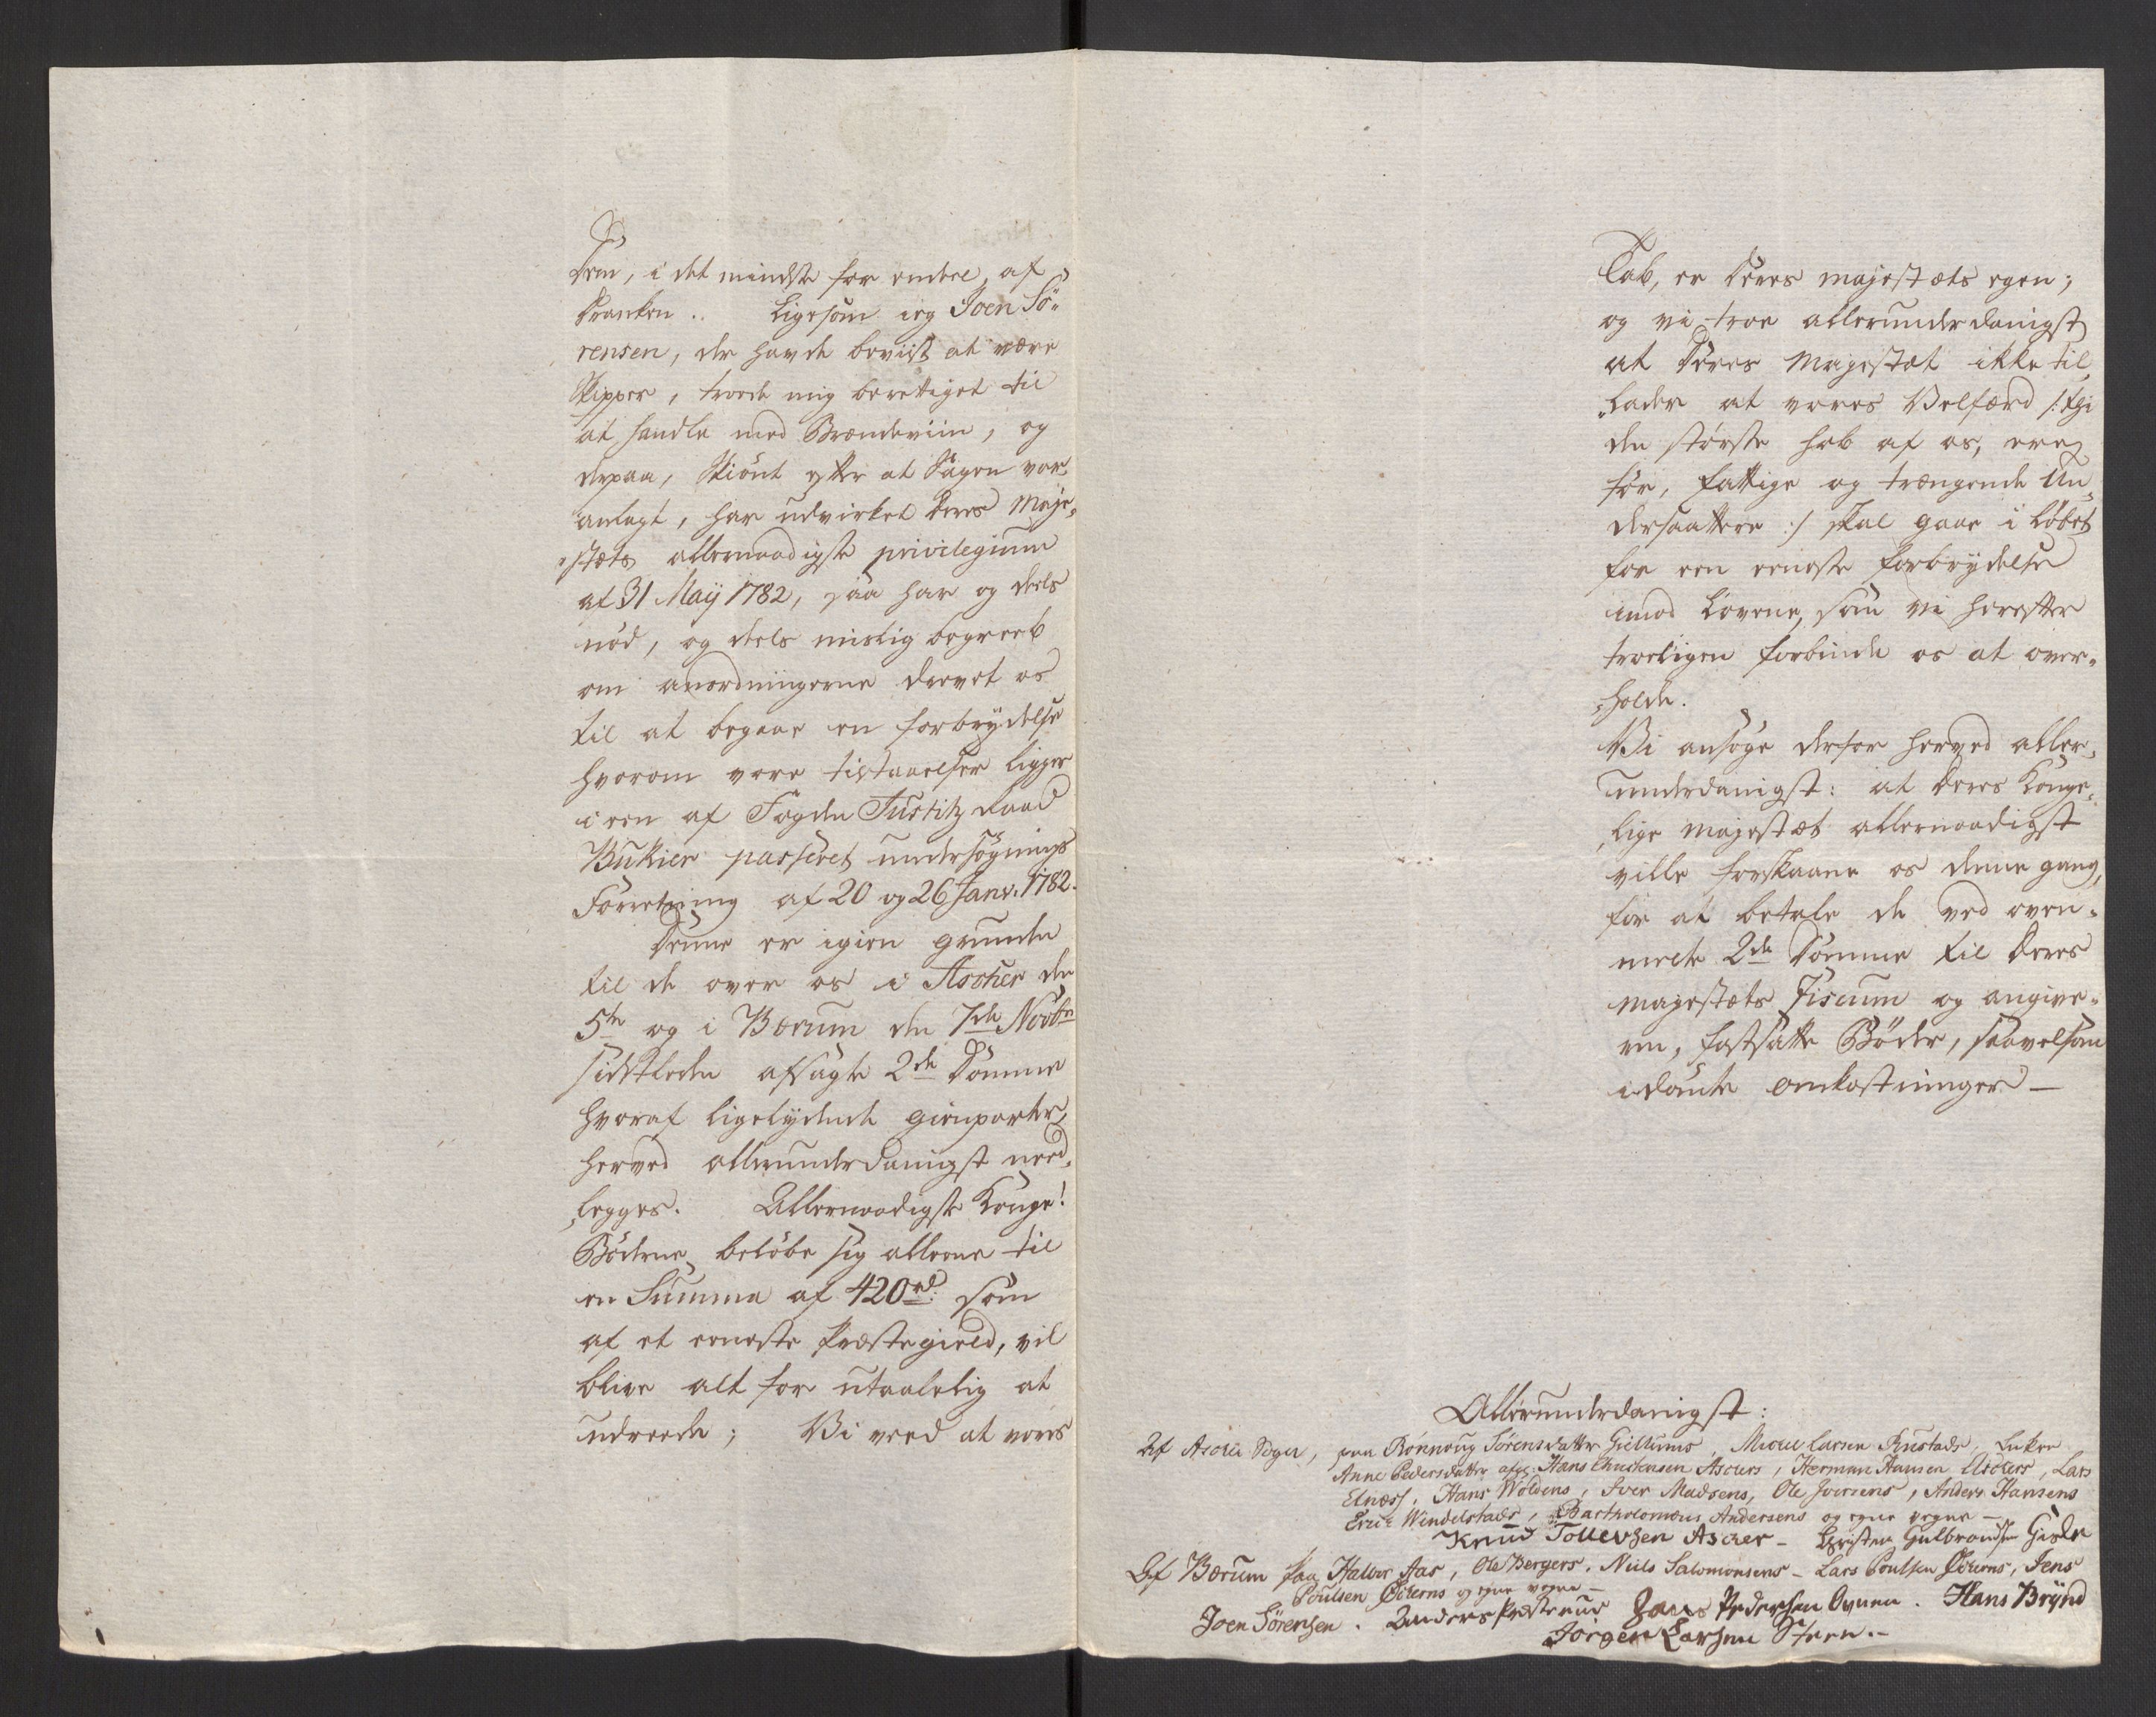 Dem, i det mindste for endeel af
Tranken.. Ligesom ieg Joen Sö„
rensen, der havde beviist at være
Skipper, troede mig berettiget til
at handle med Brændeviin, og
derpaa, skiönt efter at Sagen var
anlagt, har udvirket Deres Maje„
„stæts allernaadigste privilegium
af 31 Maÿ 1782, saa har og deels
nöd, og deels mislig begreeb
om anordningerne drevet os
til at begaae en forbrÿdelse
hvorom vore tilstaaelser ligger
i een af Fogden Justitz Raad
Bukier passeret undersögnings
Forretning af 20 og 26 Janv. 1782.
Denne er igien grunden
til de over os i Ascher den
5te og i Bærum den 7de Novbr
sidstleden afsagte 2de Domme
hvoraf ligelydende gienparter
herved allerunderdanigst need„
„legges. Allernaadigste Konge!
Böderne belöbe sig alleene til
en Summa af 420 rd. som
af et eeneste Præstegield, vil
blive alt for utaalelig at
udreede; Vi veed at vores
Tab, er Deres majestæts egen;
og vi troe allerunderdanigst
at Deres Majestæt ikke til„
„lader at vores Velfærd /: thi
den störste hob af os, ere
för, fattige og trængende Un„
dersaattere :/ skal gaae i Löbet
for een eeneste forbrydelse
imod Lovene, som vi herefter
troeligen forbinde os at over„
„holde.
Vi ansöge derfor herved aller„
underdanigst: at Deres Konge„
„lige majestæt allernaadigst
ville forskaane os denne gang,
for at betale de ved oven„
melte 2de Domme til Deres
majestæts Fiscum og angive„
ren, fastsatte Böder, saavelsom
idömte omkostninger —
Allerunderdanigst:
Af Ascher Sogn, paa Rönnoug Sörensdatter Giellums, Larsen Rustads,
Anne Pedersdatter, Hans Christensen Aschers, Herman Hansen Aschers, Lars
Elnæss, Hans Woldens, Iver Madsens, Ole Iversens, Anders Hansens
Eric Windelstads, Bartholomæus Andersens og egne vegne —
Knud Tollevsen Ascher — Christen Gulbrandsen Gisle
Af Bærum paa Halvor Aas, Ole Bergers, Niels Salomonsens — Lars Poulsen Öderns, Jens
Poulsen Öderns og egne vegne —
Joen Sörensen. Anders Præsterud Hans Pedersen Ounen. Hans Brÿnd
Jörgen Larsen Steen.-